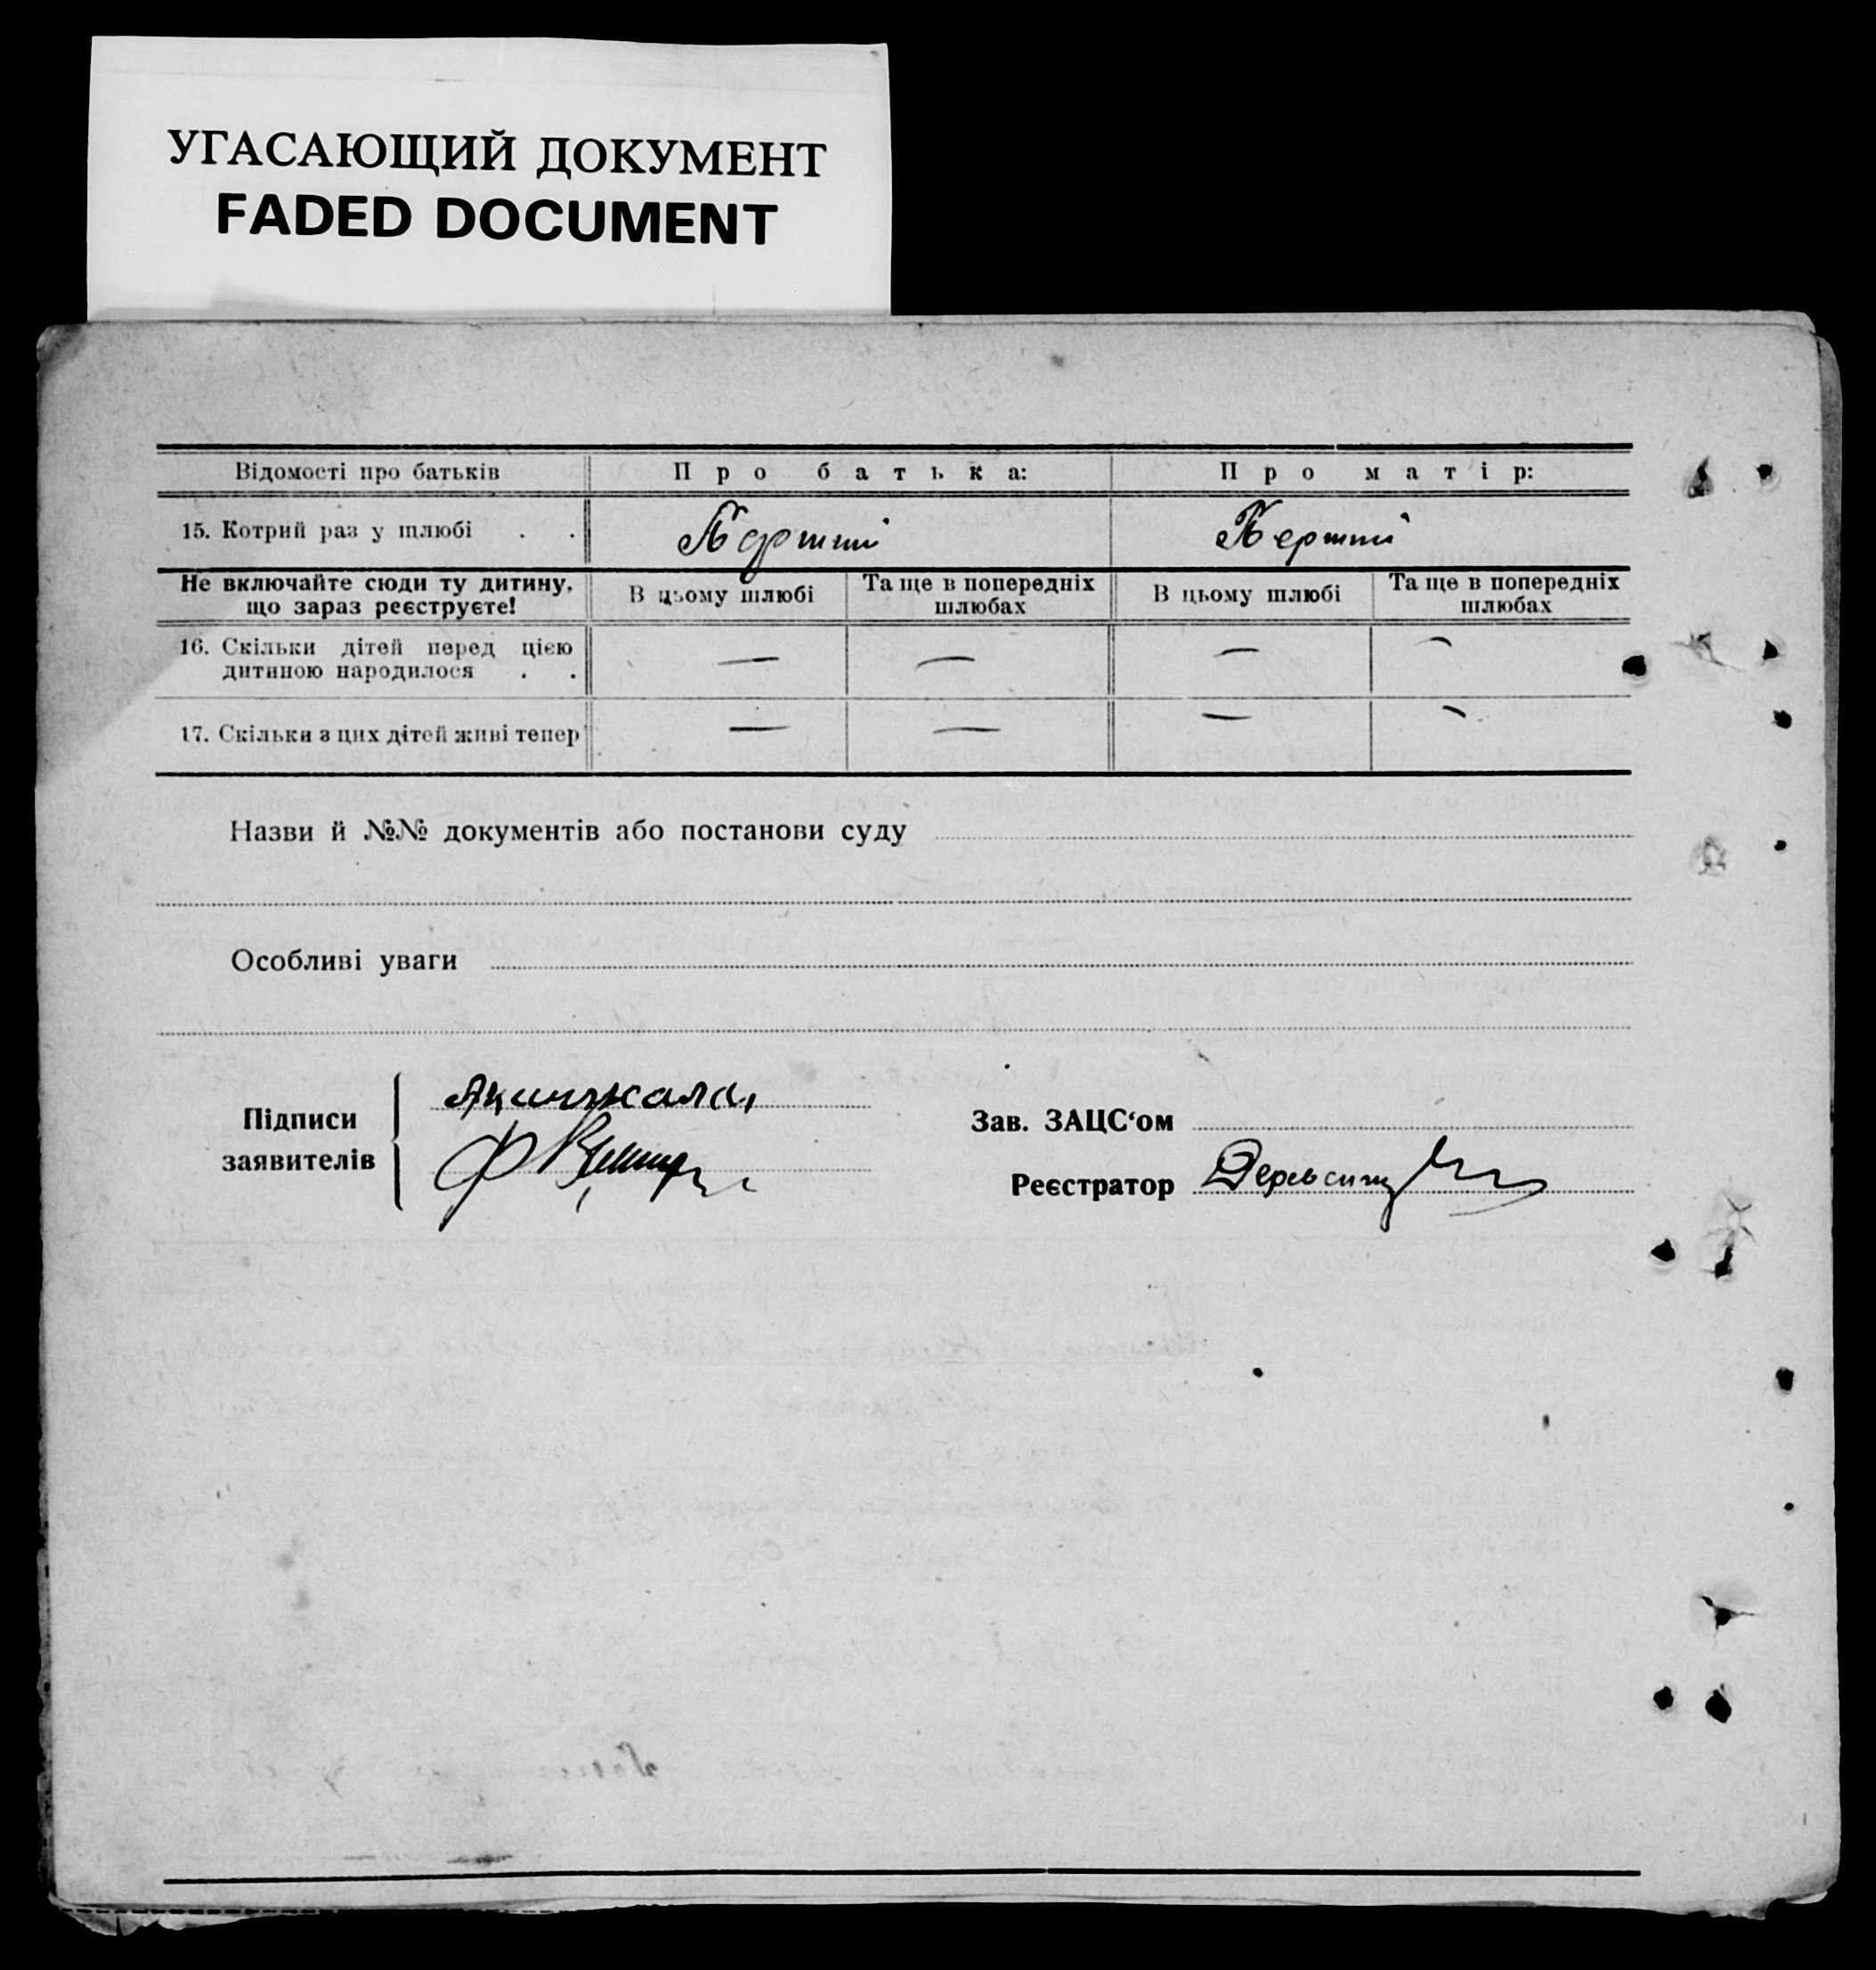 УГАСАЮЩИЙ ДОКУМЕНТ
FADED DOCUMENT
Відомості про батьків Про батька: Про матір:
15. Котрий раз у шлюбі . . Перший Перший
Не включайте сюди ту дитину, що зараз реєструєте! В цьому шлюбі Та ще в попередніх шлюбах В цьому шлюбі Та ще в попередніх шлюбах
16. Скільки дітей перед цією
дитиною народилося . . — — — —
17. Скільки з цих дітей живі тепер — — — —
Назви й №№ документів або постанови суду
Особливі уваги
Підписи
заявителів
Зав. ЗАЦС‘ом
Реєстратор